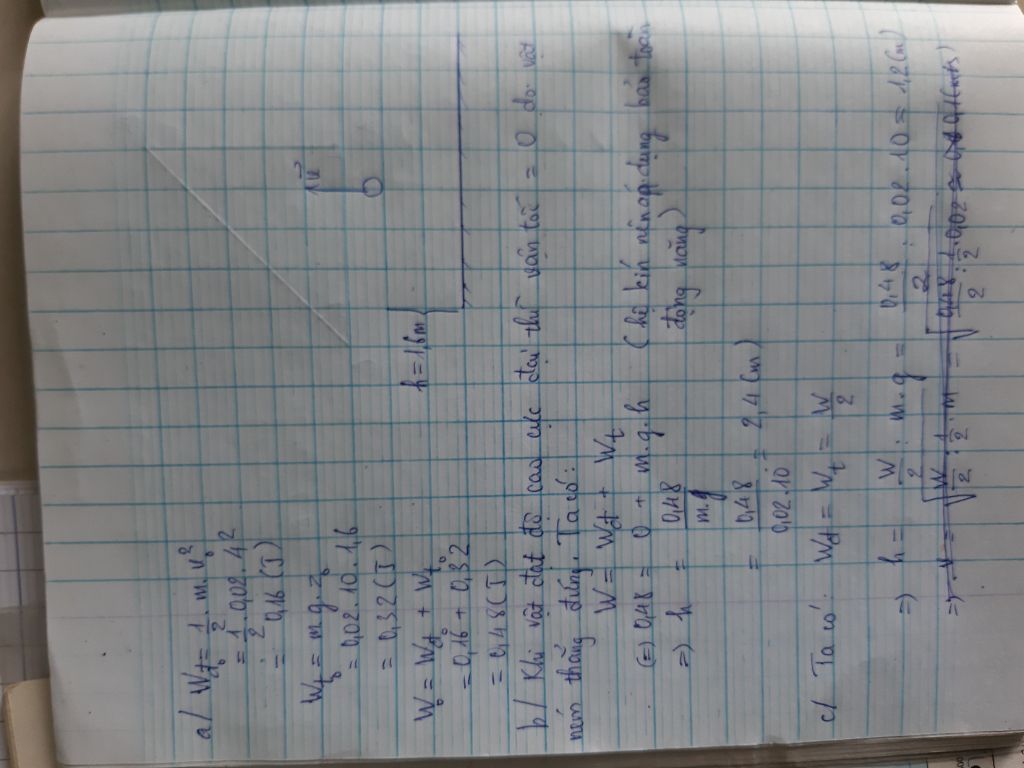 a/ Wđ₀ = 1/2 . m.v₀²
= 1/2 . 0,02. 4²
= 0,16 (J)
Wt₀ = m.g.z₀
= 0,02. 10. 1,6
= 0,32 (J)
W₀ = Wđ₀ + Wt₀
= 0,16 + 0,32
= 0,48 (J)
h = 1,6m
b/ Khi vật đạt độ cao cực đại thì vận tốc = 0 do vật
ném thẳng đứng. Ta có:
W = Wđ + Wt
(=) 0,48 = 0 + m.g.h (hệ kín nên áp dụng bảo toàn
động năng)
=) h = 0,48 / m.g
= 0,48 / 0,02.10 = 2,4 (m)
c/ Ta có: Wđ = Wt = W/2
=) h = W/2 : m.g = 0,48/2 : 0,02.10 = 1,2 (m)